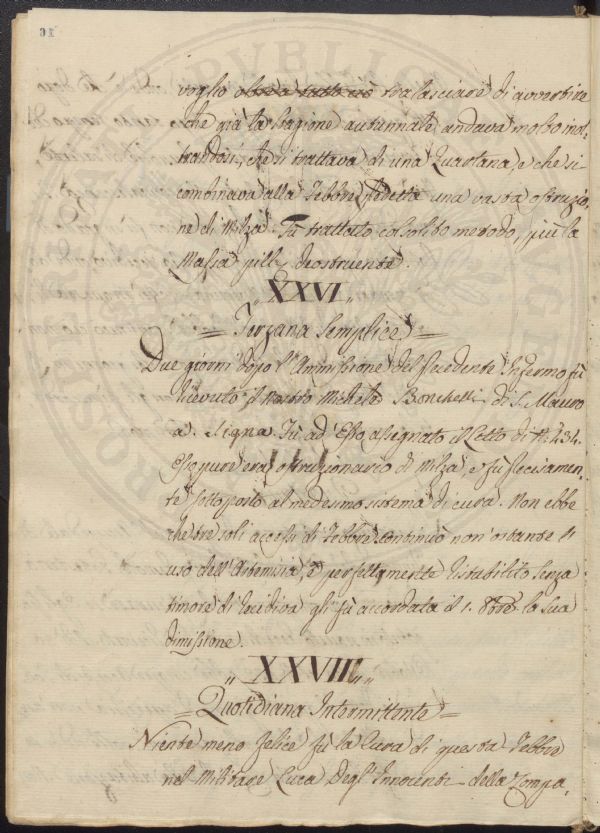 voglio oltre a tutto ciò tralasciare di avvertire
che già la stagione autunnale andava molto inol-
trandosi, che si trattava di una Quartana, e che si
combinava alla Febbre sudetta una vasta ostruzio-
ne di Milza. Fù trattato col solito metodo, più la
Massa pill: deostruente.
„XXVI„
= Terzana Semplice =
Due giorni dopo l'Ammissione del precedente Infermo fù
ricevuto il Michele Bonchelli di S. Mauro
a Signa. Fù ad Esso assegnato il Letto di N. 434.
Esso pure era ostruzionario di Milza, e fù precisamen-
te sottoposto al medesimo sistema di cura. Non ebbe
che tre soli accessi di Febbre continuò non ostante l'
uso dell'Artemisia, e perfettamente ristabilito senza
timore di recidiva gli fù accordata il 1. 8bre la sua
dimissione.
„XXVIII„
= Quotidiana Intermittente =
Niente meno felice fù la Cura di questa Febbre
nel Militare Luca Degl'Innocenti della Compa-